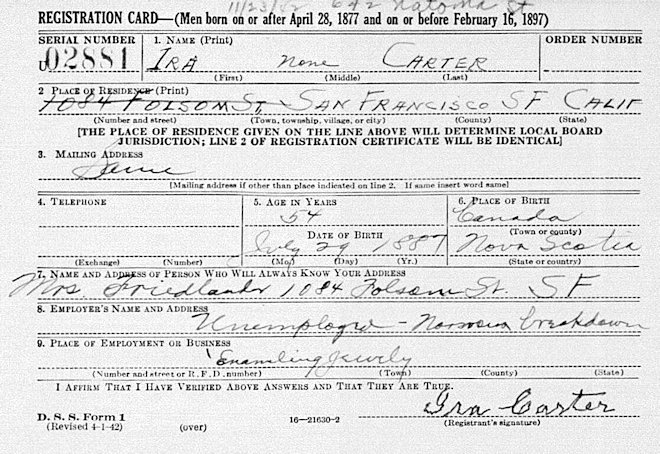 11/23/52 642 Natoma St
REGISTRATION CARD—(Men born on or after April 28, 1877 and on or before February 16, 1897)
SERIAL NUMBER 1. NAME (Print) ORDER NUMBER
U 02881 IRA none CARTER
(First) (Middle) (Last)
2 PLACE OF RESIDENCE (Print)
1084 FOLSOM St, SAN FRANCISCO SF CALIF
(Number and street) (Town, township, village, or city) (County) (State)
[THE PLACE OF RESIDENCE GIVEN ON THE LINE ABOVE WILL DETERMINE LOCAL BOARD
JURISDICTION; LINE 2 OF REGISTRATION CERTIFICATE WILL BE IDENTICAL]
3. MAILING ADDRESS
Same
[Mailing address if other than place indicated on line 2. If same insert word same]
4. TELEPHONE 5. AGE IN YEARS 6. PLACE OF BIRTH
54 Canada
DATE OF BIRTH (Town or county)
July 29 1887 Nova Scotia
(Exchange) (Number) (Mo.) (Day) (Yr.) (State or country)
7. NAME AND ADDRESS OF PERSON WHO WILL ALWAYS KNOW YOUR ADDRESS
Mrs Friedlander 1084 Folsom St. SF
8. EMPLOYER'S NAME AND ADDRESS
Unemployed - breakdown
9. PLACE OF EMPLOYMENT OR BUSINESS
Enamling Jewely
(Number and street or R. F. D. number) (Town) (County) (State)
I AFFIRM THAT I HAVE VERIFIED ABOVE ANSWERS AND THAT THEY ARE TRUE.
Ira Carter
D. S. S. Form 1 16—21630-2 (Registrant's signature)
(Revised 4-1-42) (over)